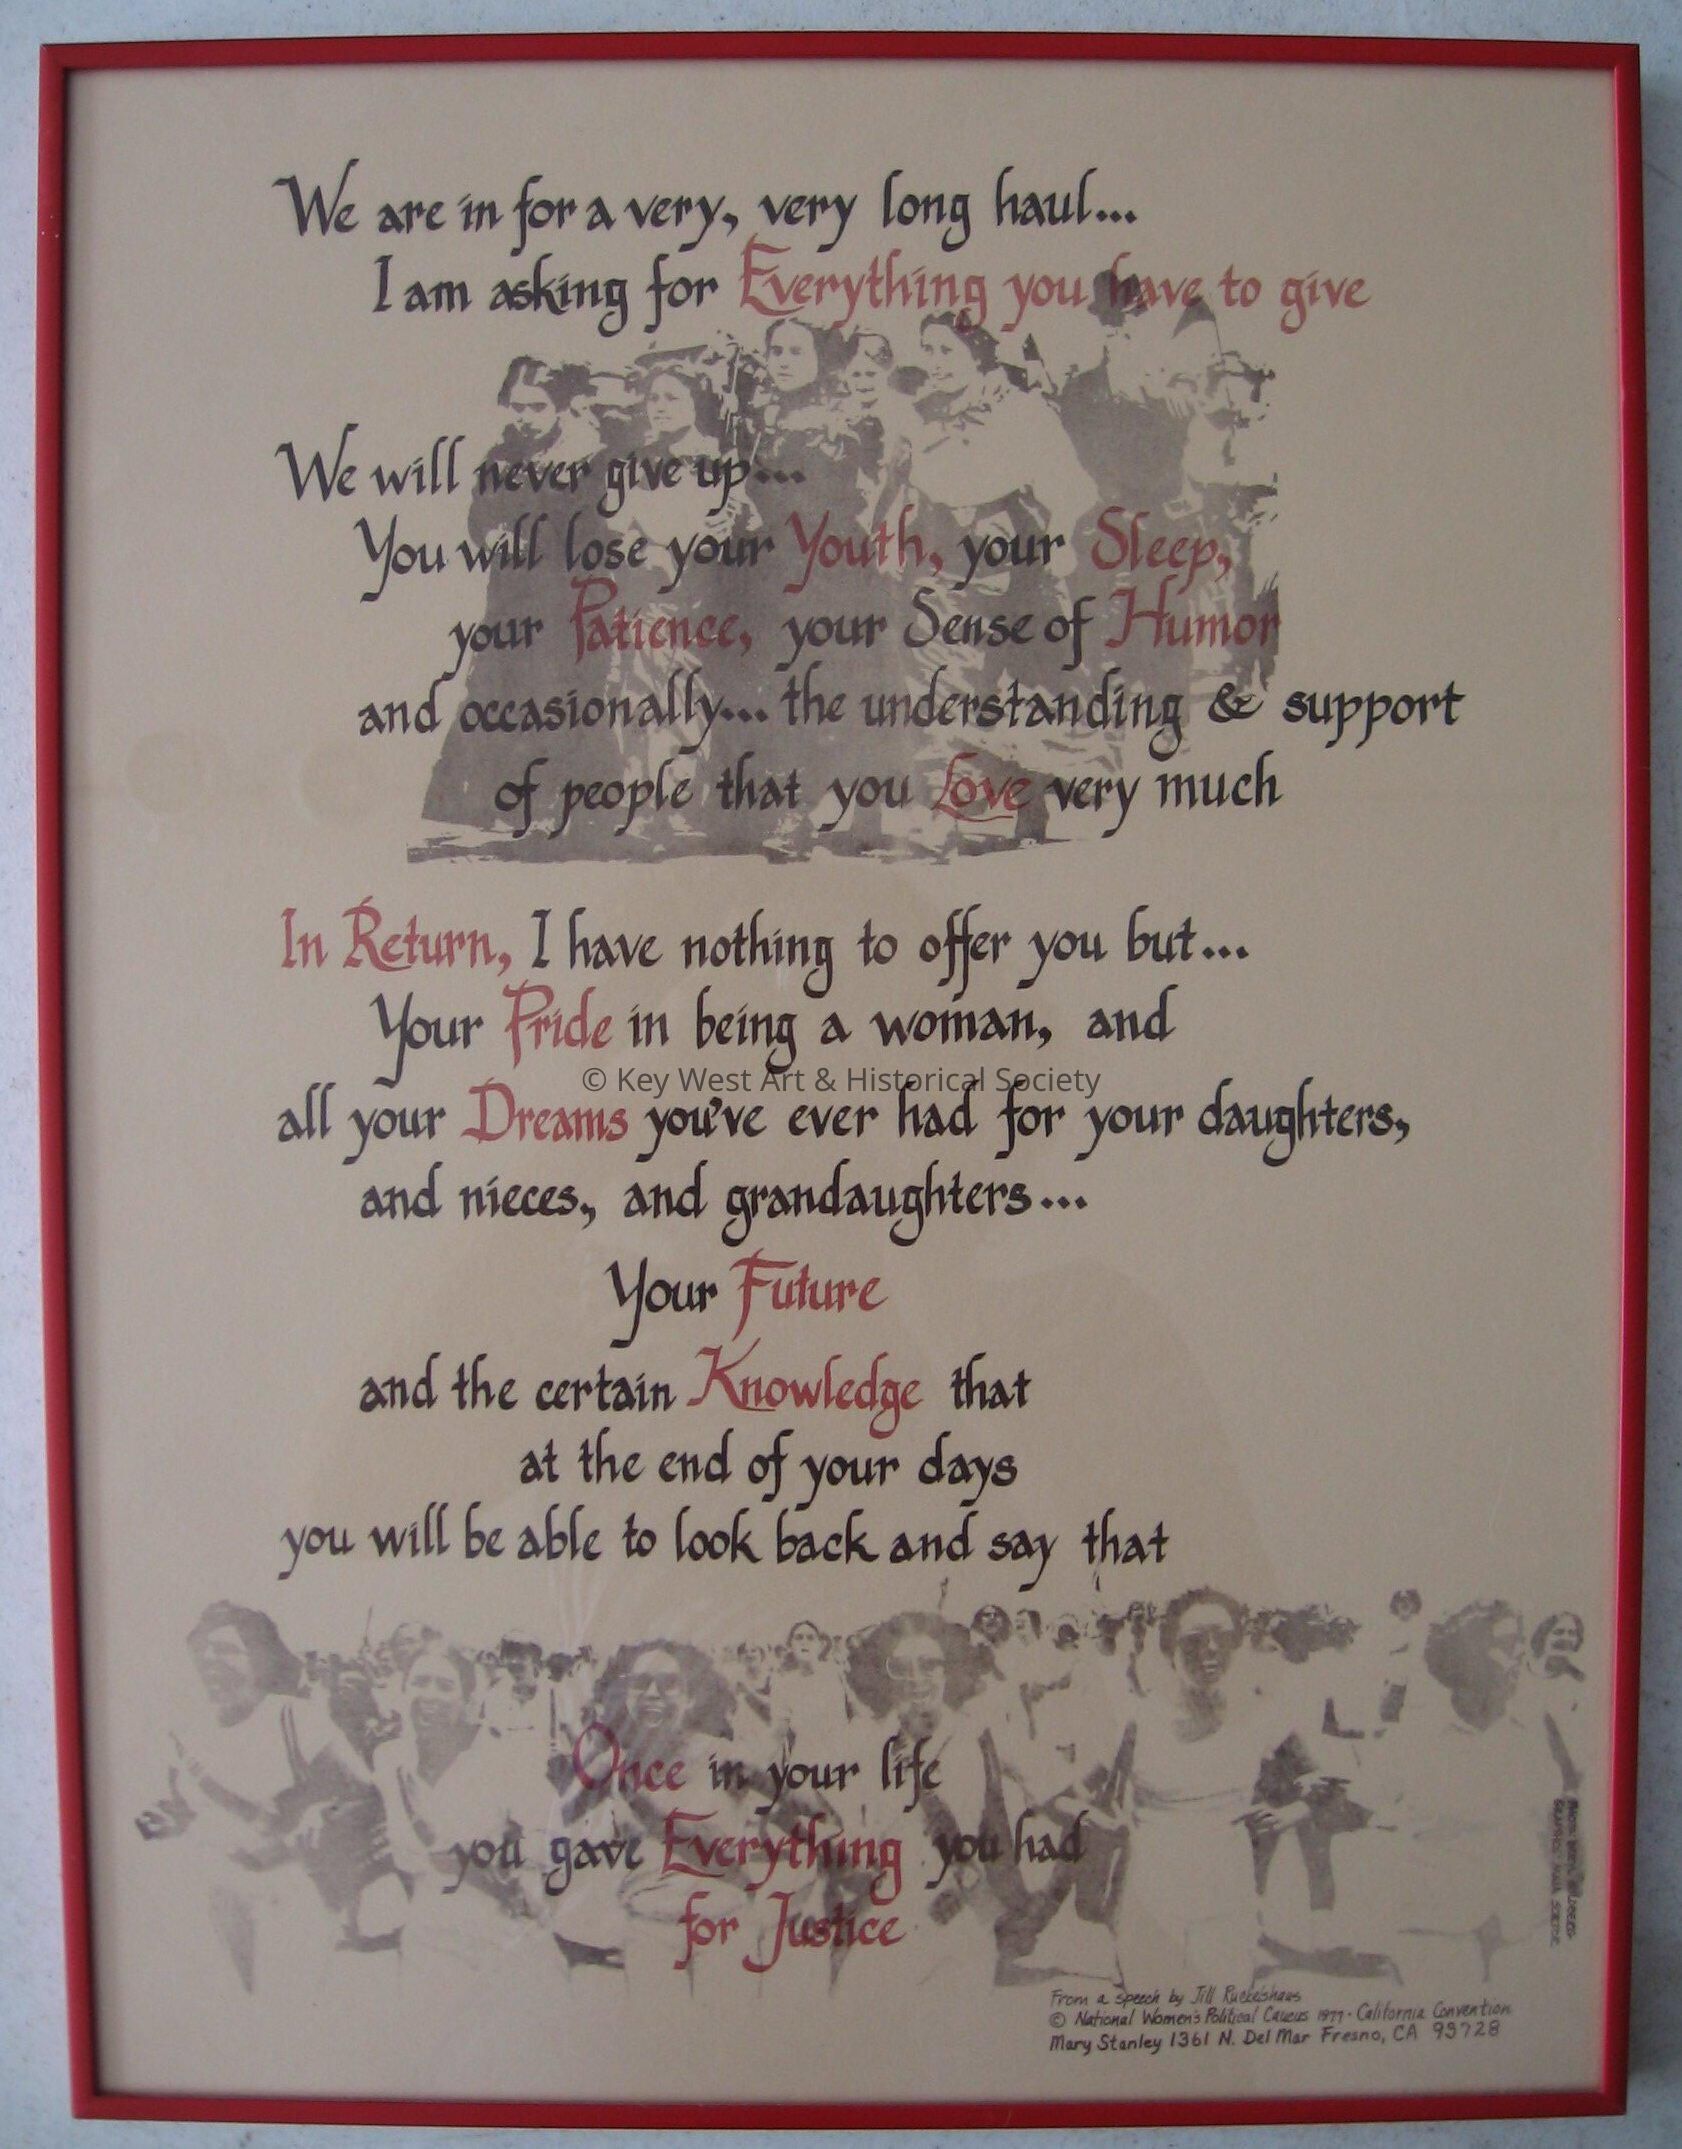 We are in for a very, very long haul...
I am asking for Everything you have to give
We will never give up...
You will lose your Youth, your Sleep,
your Patience, your Sense of Humor
and occasionally... the understanding & support
of people that you Love very much
In Return, I have nothing to offer you but...
Your Pride in being a woman, and
© Key West Art & Historical Society
all your Dreams you've ever had for your daughters,
and nieces, and grandaughters...
Your Future
and the certain Knowledge that
at the end of your days
you will be able to look back and say that
Once in your life
you gave Everything you had
for Justice
From a speech by Jill Ruckelshaus
© National Women's Political Caucus 1977 · California Convention
Mary Stanley 1361 N. Del Mar Fresno, CA 93728